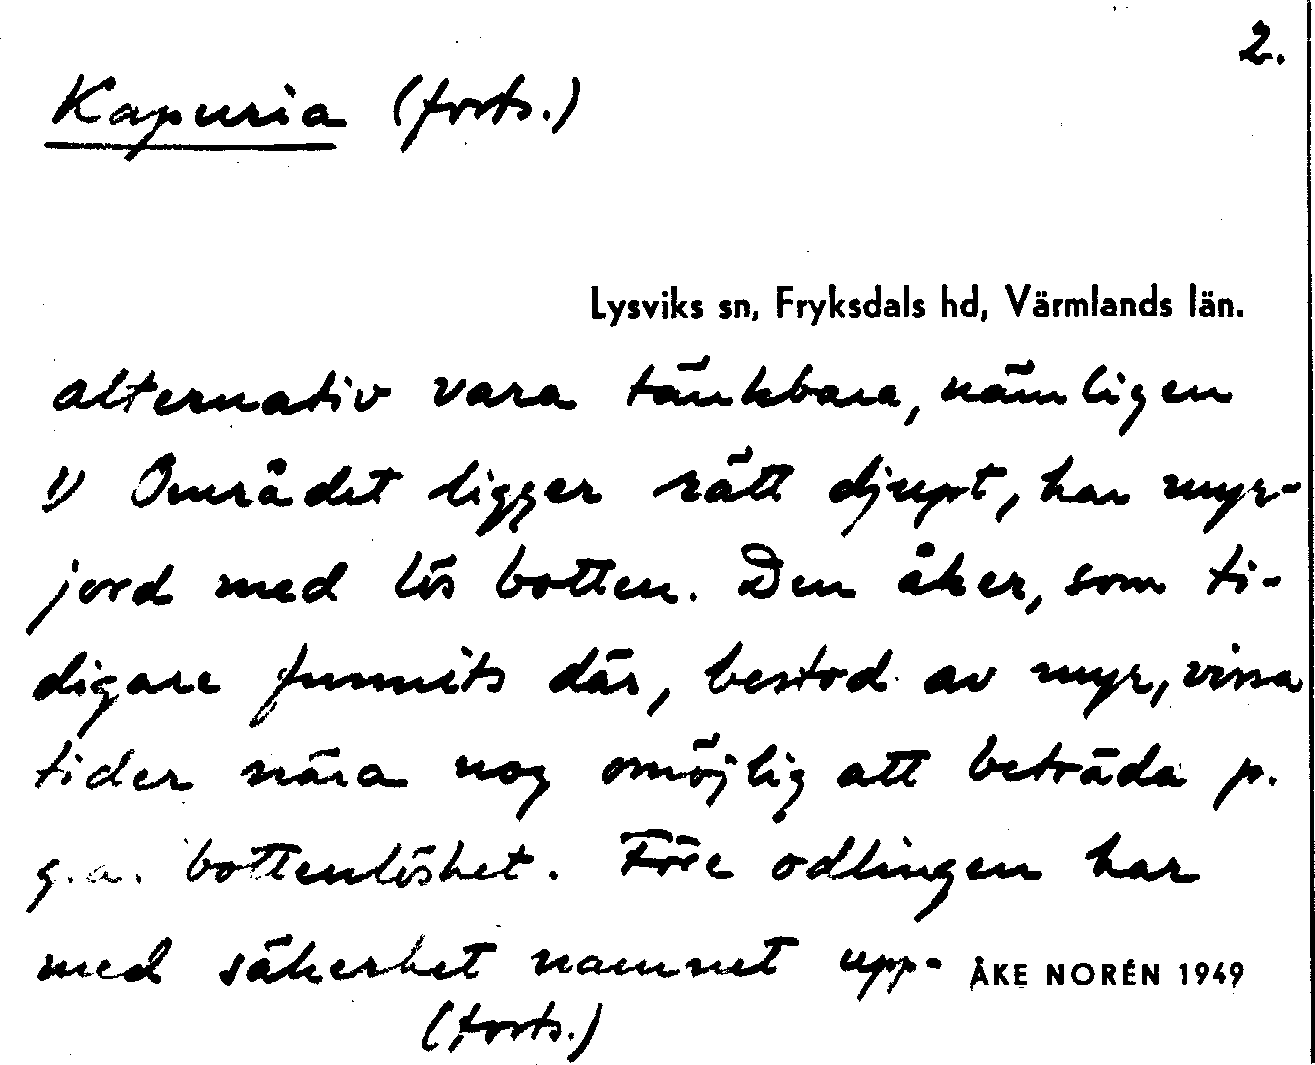 2.
Kapuria (forts.)
Lysviks sn, Fryksdals hd, Värmlands län.
alternativ vara tänkbara, nämligen
1) Området ligger rätt djupt, har myr-
jord med lös botten. Den åker, som ti-
digare funnits där, bestod av myr, vissa
tider nära nog omöjlig att beträda p.
g.a. bottenlöshet. Före odlingen har
med säkerhet namnet upp-
ÅKE NORÉN 1949
(forts.)